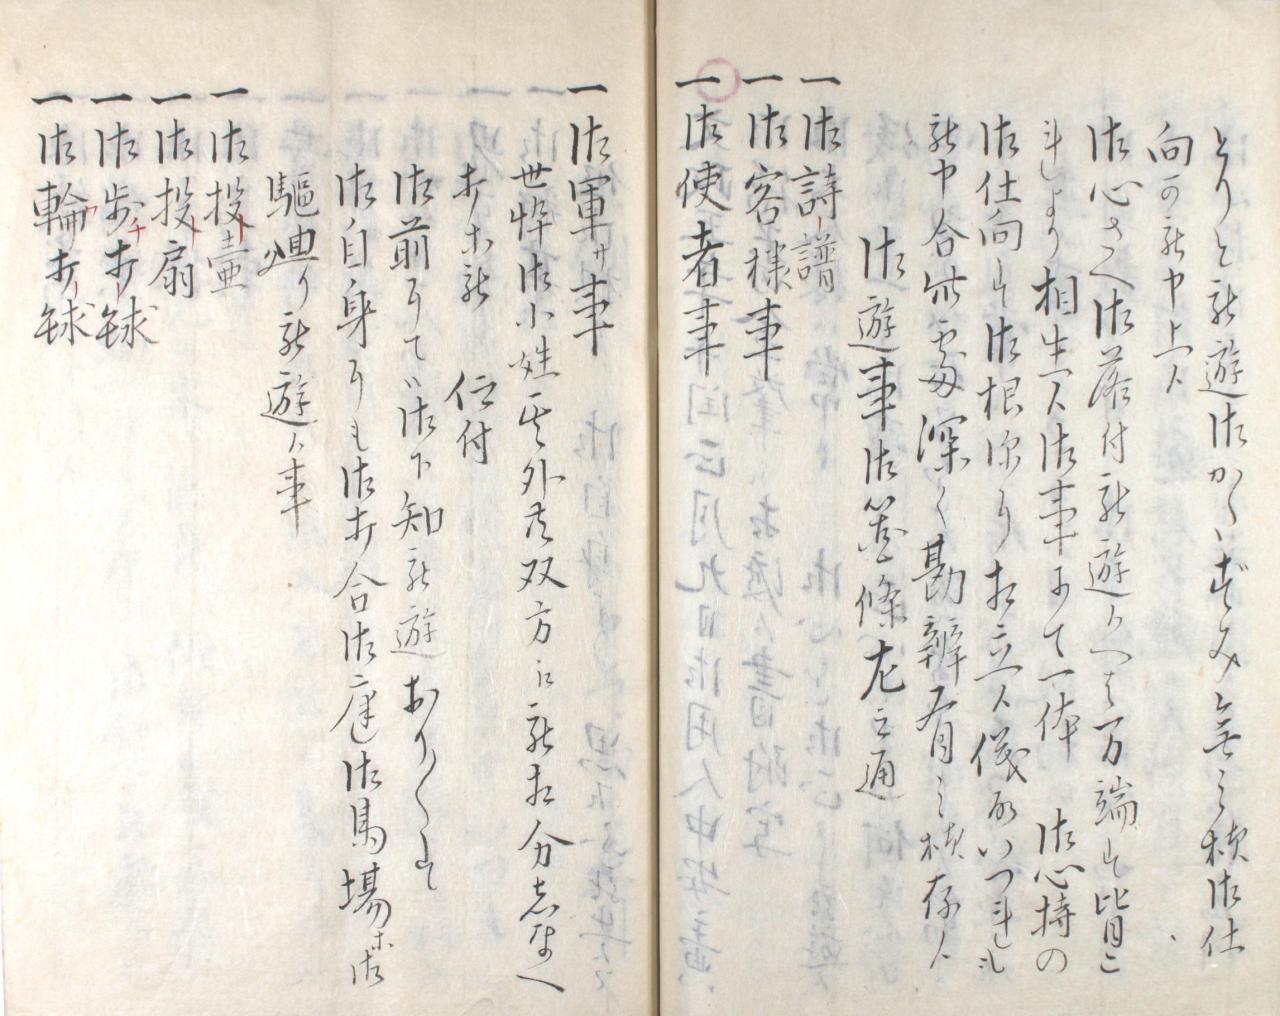 とりと被遊御かくはずみ無之様御仕
向可被申上候
御心さへ御落付被遊候へは万端は皆こ
れより相生候御事にて一体 御心持の
御仕向は御根深り相立候儀故いつれも
被申合此処深く勘辨有之様存候
御遊事御箇條左之通
一御詩譜
一御客様事
一御使者事
一御軍サ事
世悴御小姓其外共双方に被相分志なへ
打等被 仰付
御前にては御下知被遊おり〳〵は
御自身にも御打合御庭御馬場等御
驅廻り被遊候事
一御投壷
一御投扇
一御歩打毬
一御輪打毬